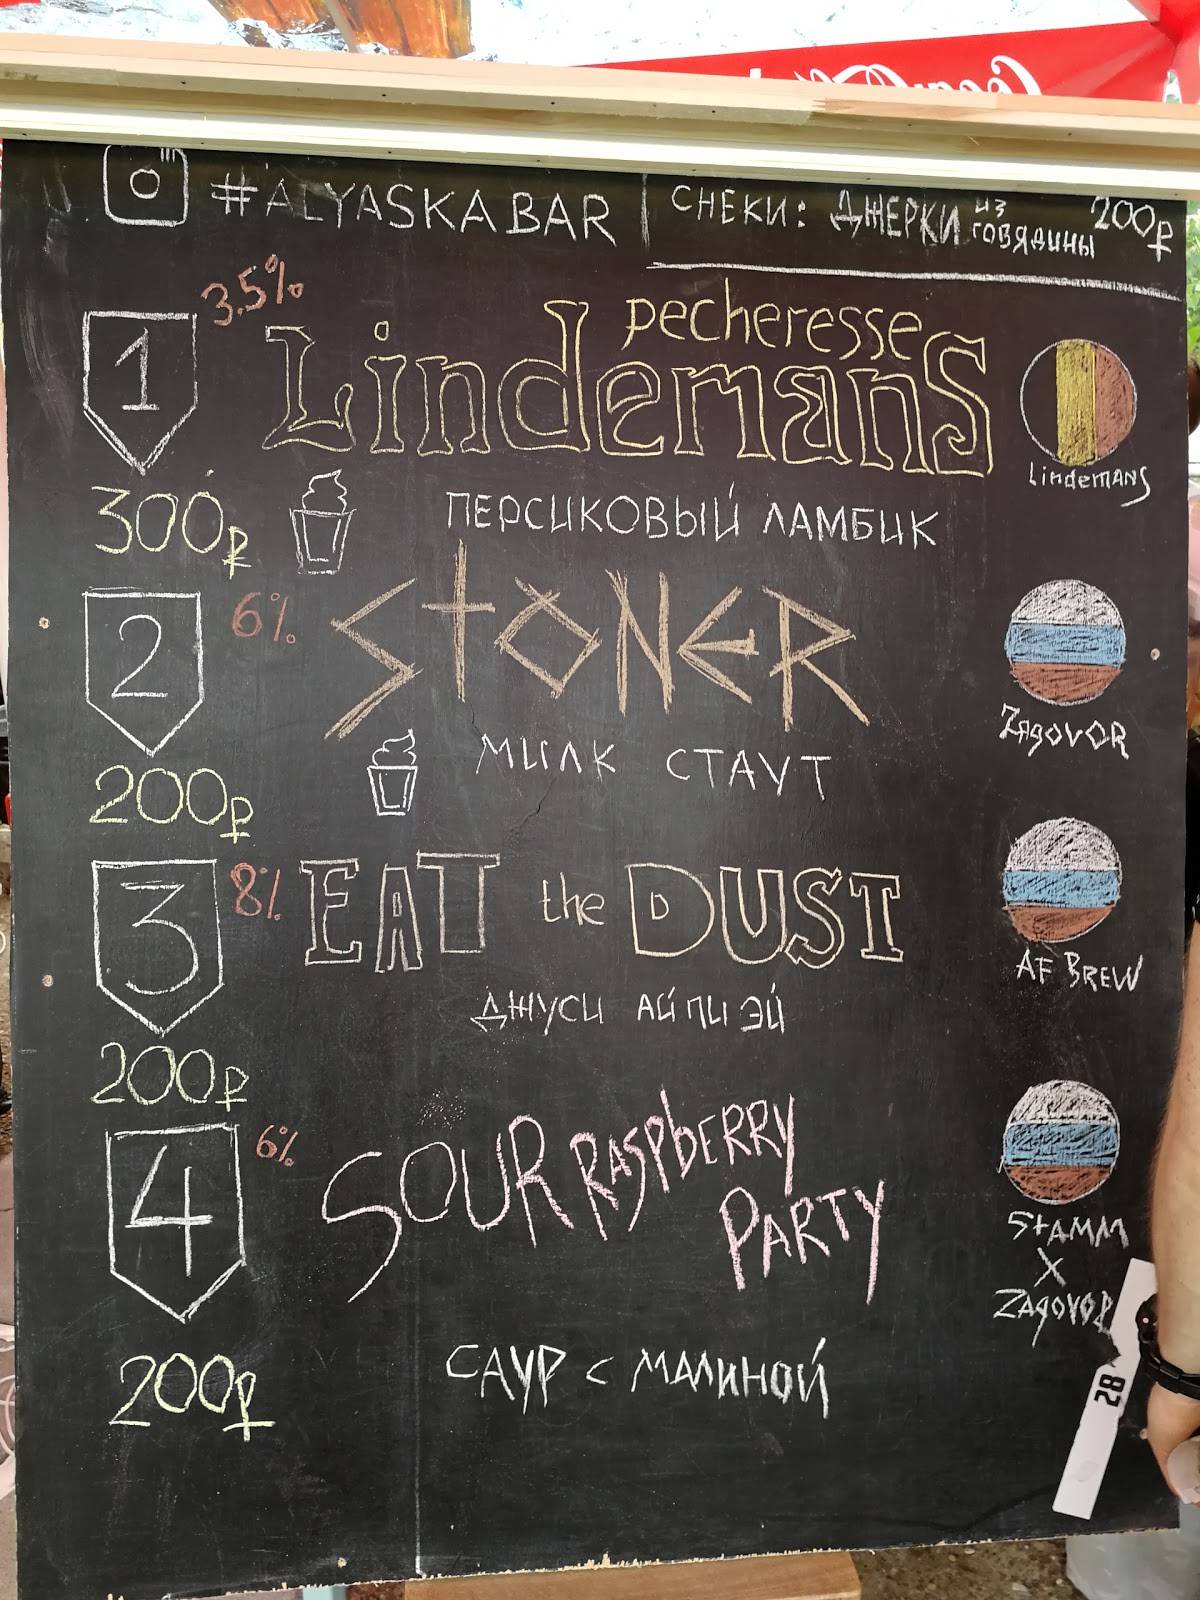 #ALYASKABAR
СНЕКИ: ДЖЕРКИ ИЗ ГОВЯДИНЫ 200₽
1
3.5%
Pecheresse
Lindemans
Lindemans
300₽
ПЕРСИКОВЫЙ ЛАМБИК
2
6%
STONER
Zagovor
200₽
МИЛК СТАУТ
3
8%
EAT the DUST
AF BREW
200₽
ДЖУСИ АЙ ПИ ЭЙ
4
6%
SOUR RASPBERRY
PARTY
STAMM
X
ZAGOVOR
200₽
САУР С МАЛИНОЙ
28